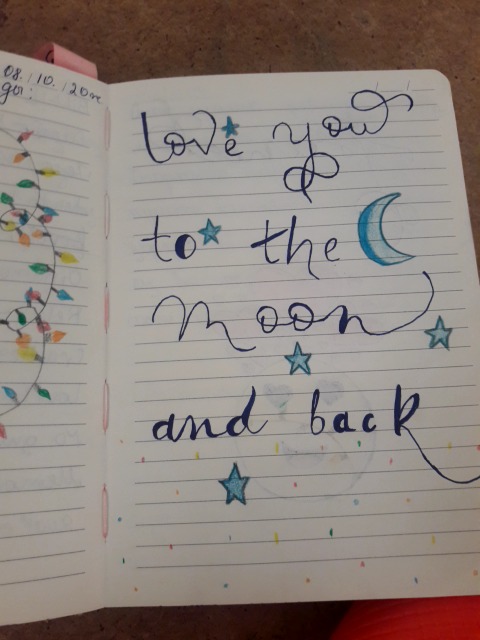 08./10./20
love you
to the
moon
and back